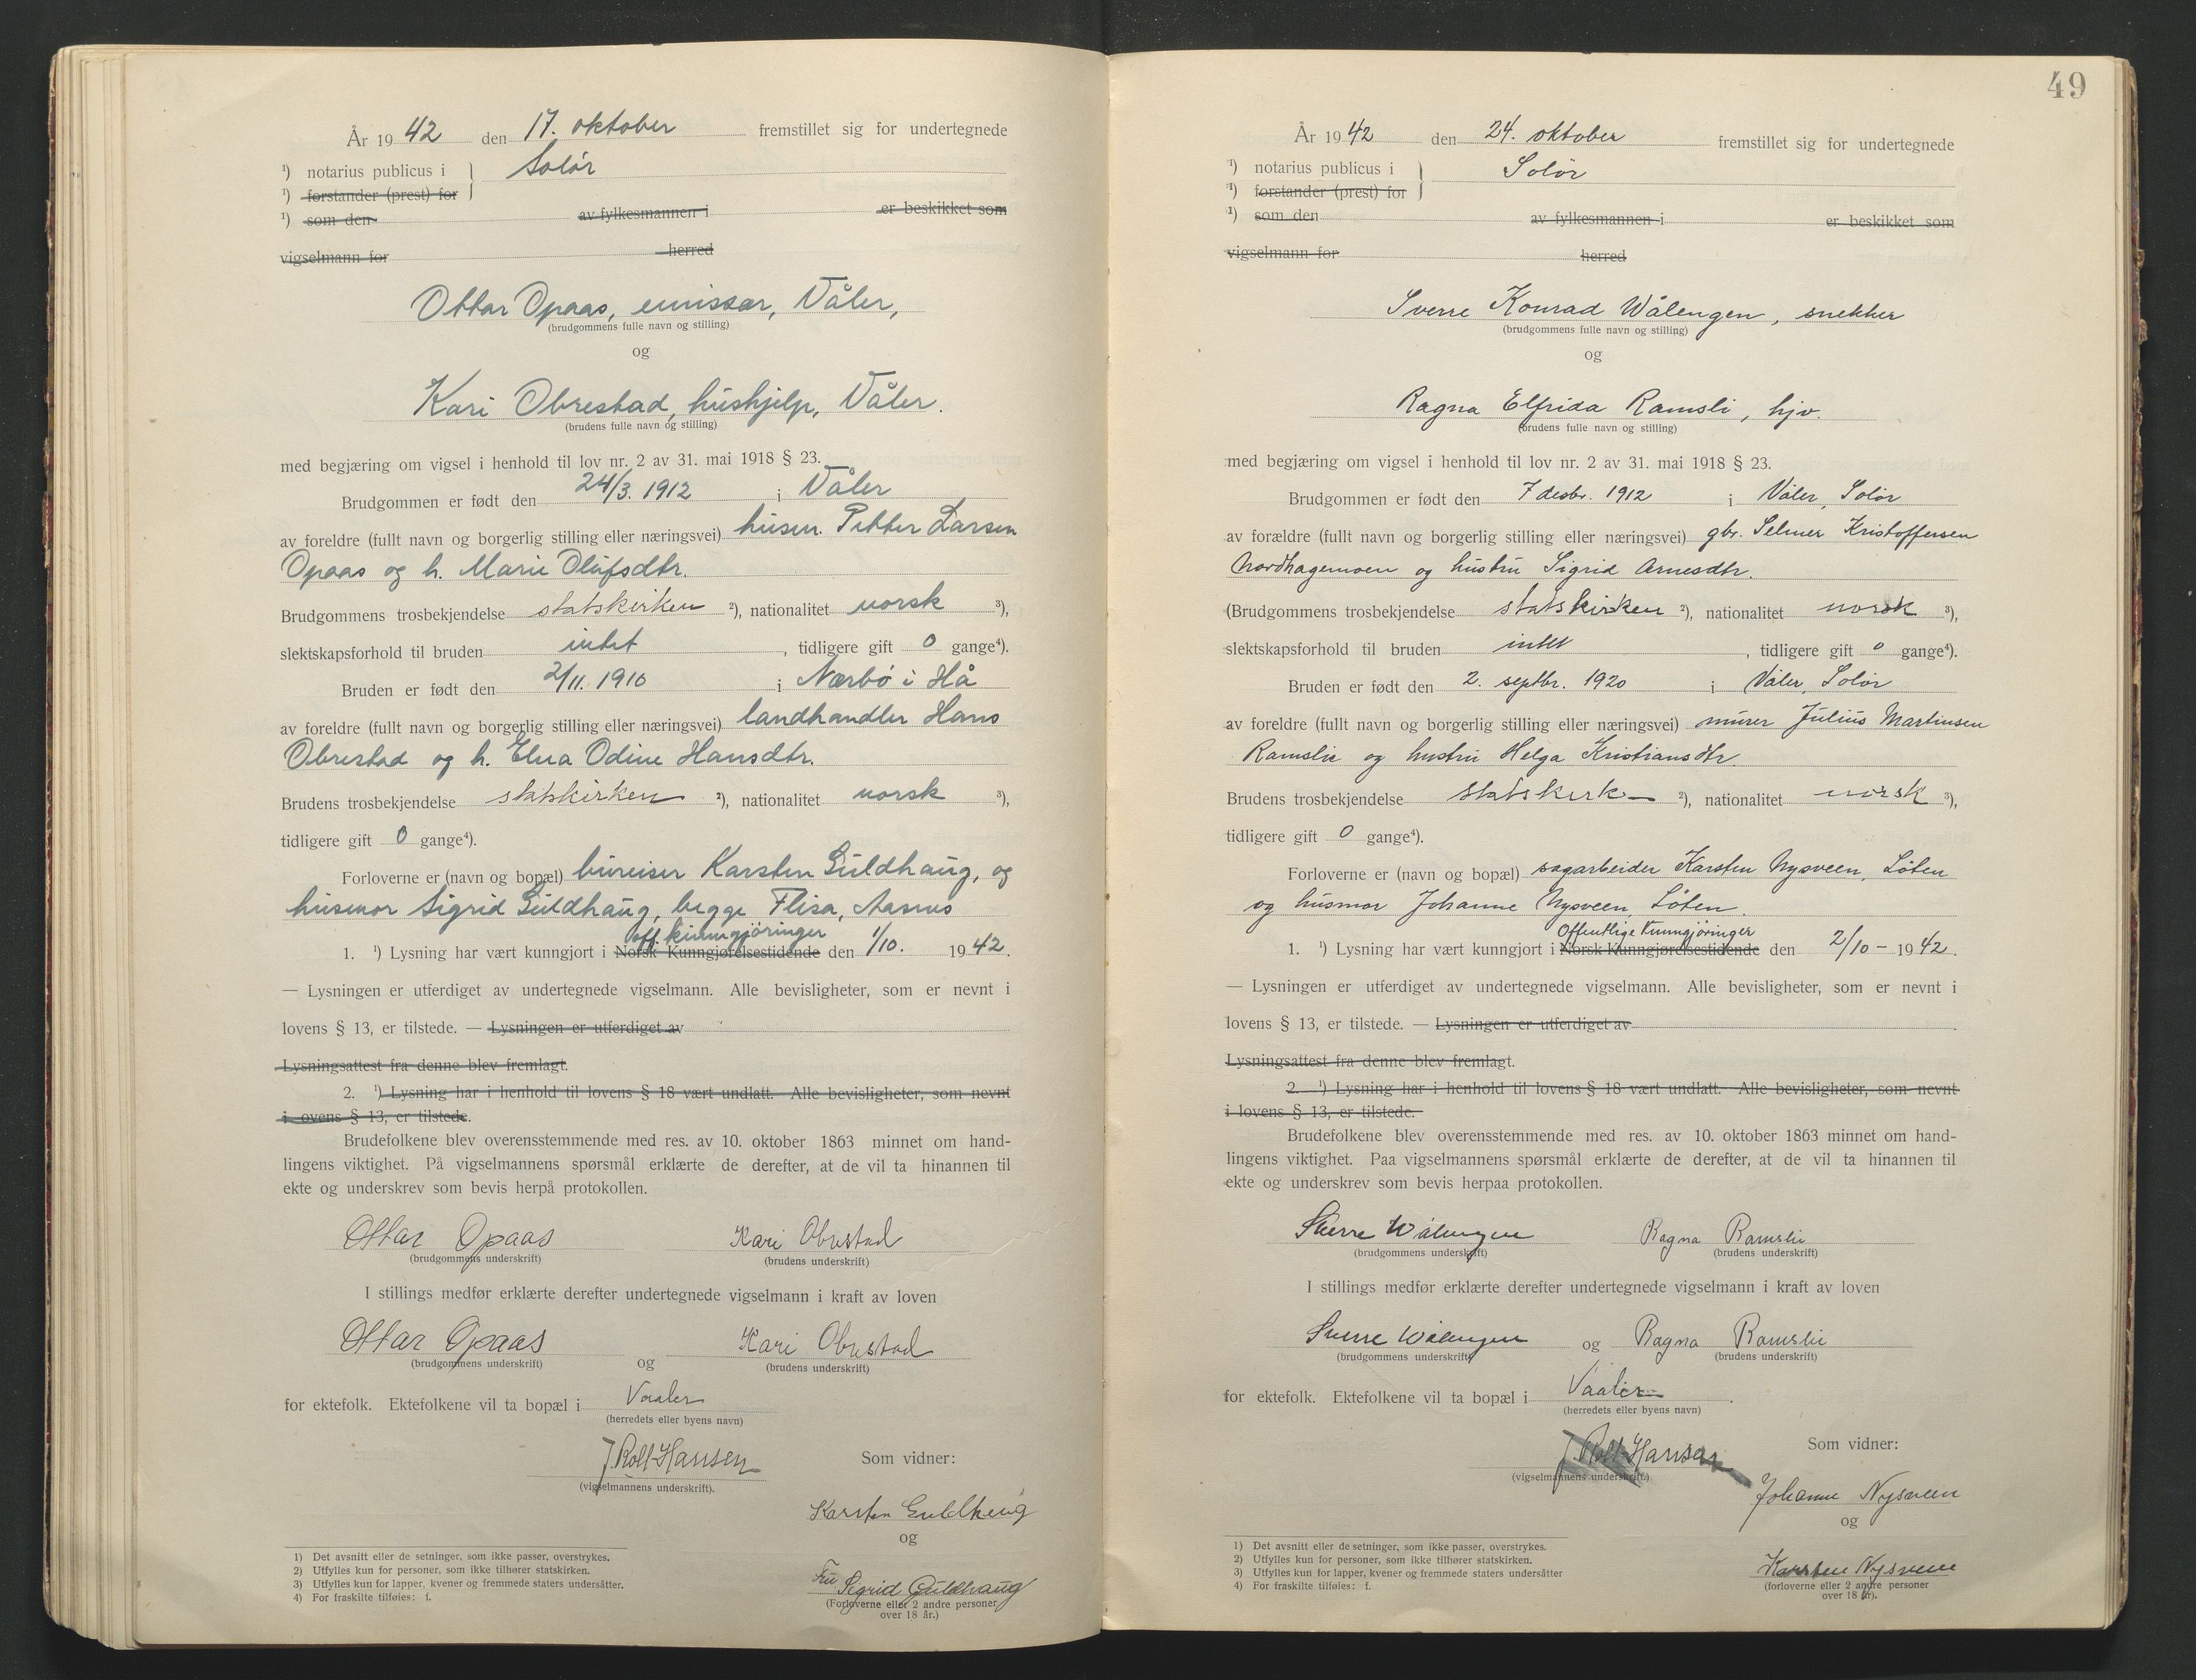 År 19 42 den 17. oktober fremstillet sig for undertegnede
¹) notarius publicus i } Solør
¹) forstander (prest) for
¹) som den av fylkesmannen i er beskikket som
vigselmann for herred
Ottar Opaas, emissær, Våler,
(brudgommens fulle navn og stilling)
og
Kari Obrestad, hushjelp, Våler.
(brudens fulle navn og stilling)
med begjæring om vigsel i henhold til lov nr. 2 av 31. mai 1918 § 23.
Brudgommen er født den 24/3. 1912 i Våler
av foreldre (fullt navn og borgerlig stilling eller næringsvei) husm. Petter Larsen
Opaas og h. Marie Olufsdtr.
Brudgommens trosbekjendelse statskirken ²), nationalitet norsk ³),
slektskapsforhold til bruden intet , tidligere gift 0 gange⁴).
Bruden er født den 2/11. 1910 i Nærbø i Hå
av foreldre (fullt navn og borgerlig stilling eller næringsvei) landhandler Hans
Obrestad og h. Elna Odine Hansdtr.
Brudens trosbekjendelse statskirken ²), nationalitet norsk ³),
tidligere gift 0 gange⁴).
Forloverne er (navn og bopæl) bureiser Karsten Guldhaug, og
husmor Sigrid Guldhaug, begge Flisa, Aasnes
off. kunngjøringer
1. ¹) Lysning har vært kunngjort i Norsk Kunngjørelsestidende den 1/10. 19 42.
— Lysningen er utferdiget av undertegnede vigselmann. Alle bevisligheter, som er nevnt i
lovens § 13, er tilstede. — Lysningen er utferdiget av
Lysningsattest fra denne blev fremlagt.
2. ¹) Lysning har i henhold til lovens § 18 vært undlatt. Alle bevisligheter, som nevnt
i ovens § 13, er tilstede.
Brudefolkene blev overensstemmende med res. av 10. oktober 1863 minnet om hand-
lingens viktighet. På vigselmannens spørsmål erklærte de derefter, at de vil ta hinannen til
ekte og underskrev som bevis herpå protokollen.
Ottar Opaas Kari Obrestad
(brudgommens underskrift) (brudens underskrift)
I stillings medfør erklærte derefter undertegnede vigselmann i kraft av loven
Ottar Opaas og Kari Obrestad
(brudgommens underskrift) (brudens underskrift)
for ektefolk. Ektefolkene vil ta bopæl i Vaaler
(herredets eller byens navn)
J. Roll-Hansen Som vidner:
(vigselmannens underskrift).
Karsten Guldhaug
og
Fru Sigrid Guldhaug
(Forloverne eller 2 andre personer
over 18 år.)
1) Det avsnitt eller de setninger, som ikke passer, overstrykes.
2) Utfylles kun for personer, som ikke tilhører statskirken.
3) Utfylles kun for lapper, kvener og fremmede staters undersåtter.
4) For fraskilte tilføies: f.
49
År 19 42 den 24. oktober fremstillet sig for undertegnede
¹) notarius publicus i } Solør
¹) forstander (prest) for
¹) som den av fylkesmannen i er beskikket som
vigselmann for herred
Sverre Konrad Wålengen, snekker
(brudgommens fulle navn og stilling)
og
Ragna Elfrida Ramsli, hjv.
(brudens fulle navn og stilling)
med begjæring om vigsel i henhold til lov nr. 2 av 31. mai 1918 § 23.
Brudgommen er født den 7 desbr. 1912 i Våler, Solør
av forældre (fullt navn og borgerlig stilling eller næringsvei) gbr. Selmer Kristoffersen
Nordhagemoen og hustru Sigrid Arnesdtr.
(Brudgommens trosbekjendelse statskirken ²), nationalitet norsk ³),
slektskapsforhold til bruden intet , tidligere gift 0 gange⁴).
Bruden er født den 2. septbr. 1920 i Våler, Solør
av foreldre (fullt navn og borgerlig stilling eller næringsvei) murer Julius Martinsen
Ramslie og hustru Helga Kristiansdtr.
Brudens trosbekjendelse statskirk ²), nationalitet norsk ³),
tidligere gift 0 gange⁴).
Forloverne er (navn og bopæl) sagarbeider Karsten Nysveen, Løten
og husmor Johanne Nysveen, Løten.
Offentlige Kunngjøringer
1. ¹) Lysning har vært kunngjort i Norsk Kunngjørelsestidende den 2/10 – 19 42.
— Lysningen er utferdiget av undertegnede vigselmann. Alle bevisligheter, som er nevnt i
lovens § 13, er tilstede. — Lysningen er utferdiget av .
Lysningsattest fra denne blev fremlagt.
2. ¹) Lysning har i henhold til lovens § 18 vært undlatt. Alle bevisligheter, som nevnt
i lovens § 13, er tilstede.
Brudefolkene blev overensstemmende med res. av 10. oktober 1863 minnet om hand-
lingens viktighet. Paa vigselmannens spørsmål erklærte de derefter, at de vil ta hinannen til
ekte og underskrev som bevis herpaa protokollen.
Sverre Wålengen Ragna Ramslie
(brudgommens underskrift) (brudens underskrift)
I stillings medfør erklærte derefter undertegnede vigselmann i kraft av loven
Sverre Wålengen og Ragna Ramslie
(brudgommens underskrift) (brudens underskrift)
for ektefolk. Ektefolkene vil ta bopæl i Vaaler .
(herredets eller byens navn)
J. Roll-Hansen Som vidner:
(vigselmannens underskrift.)
Johanne Nysveen
og
Karsten Nysveen
(forloverne eller 2 andre personer
over 18 år).
1) Det avsnitt eller de setninger, som ikke passer, overstrykes.
2) Utfylles kun for personer, som ikke tilhører statskirken.
3) Utfylles kun for lapper, kvener og fremmede staters undersåtter
4) For fraskilte tilføies: f.